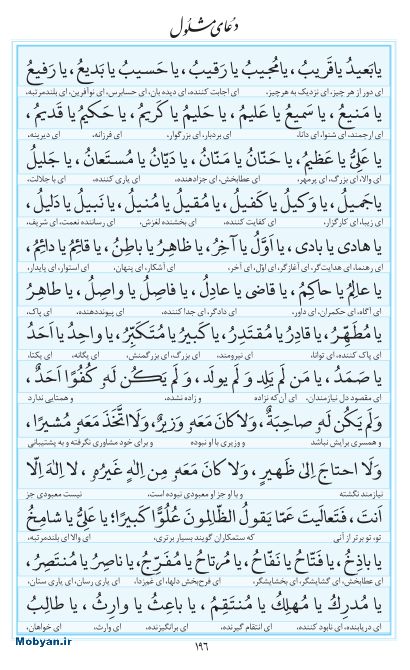 دُعای مشلول
یا بَعیدُ یا قَریبُ، یا مُجیبُ یا رَقیبُ، یا حَسیبُ یا بَدیعُ، یا رَفیعُ
ای دور از هر چیز، ای نزدیک به هر چیز، ای اجابت کننده، ای دیده بان، ای حسابرس، ای نوآفرین، ای بلندمرتبه،
یا مَنیعُ، یا سَمیعُ یا عَلیمُ، یا حَلیمُ یا کَریمُ، یا حَکیمُ یا قَدیمُ،
ای ارجمند، ای شنوا، ای دانا، ای بردبار، ای بزرگوار، ای فرزانه، ای دیرینه،
یا عَلِیُّ یا عَظیمُ، یا حَنّانُ یا مَنّانُ، یا دَیّانُ یا مُستَعانُ، یا جَلیلُ
ای والا، ای بزرگ، ای پرمهر، ای عطابخش، ای جزادهنده، ای یاری کننده، ای با جلالت،
یا جَمیلُ، یا وَکیلُ یا کَفیلُ، یا مُقیلُ یا مُنیلُ، یا نَبیلُ یا دَلیلُ،
ای زیبا، ای کارگزار، ای کفایت کننده، ای بخشنده لغزش، ای رساننده نعمت، ای شریف،
یا هادی یا بادی، یا اَوَّلُ یا آخِرُ، یا ظاهِرُ یا باطِنُ، یا قائِمُ یا دائِمُ،
ای رهنما، ای هدایت‌گر، ای آغازگر، ای اوّل، ای آخر، ای آشکار، ای پنهان، ای استوار، ای پایدار،
یا عالِمُ یا حاکِمُ، یا قاضی یا عادِلُ، یا فاصِلُ یا واصِلُ، یا طاهِرُ
ای آگاه، ای حکمران، ای داور، ای دادگر، ای جدا کننده، ای پیونددهنده، ای پاک،
یا مُطَهِّرُ، یا قادِرُ یا مُقتَدِرُ، یا کَبیرُ یا مُتَکَبِّرُ، یا واحِدُ یا اَحَدُ
ای پاک کننده، ای توانا، ای نیرومند، ای بزرگ، ای بزرگمنش، ای یگانه، ای یکتا،
یا صَمَدُ، یا مَن لَم یَلِد وَ لَم یولَد، وَ لَم یَکُن لَهُ کُفُوًا اَحَدٌ،
ای مقصود دل نیازمندان، ای آن که نزاده و زاده نشده، و همتایی ندارد
وَلَم یَکُن لَهُ صاحِبَةٌ، وَلا کانَ مَعَهُ وَزیرٌ، وَلَا اتَّخَذَ مَعَهُ مُشیرًا،
و همسری برایش نباشد و وزیری با او نبوده و برای خود مشاوری نگرفته و به پشتیبانی
وَلَا احتاجَ اِلیٰ ظَهیرٍ، وَلا کانَ مَعَهُ مِن اِلٰهٍ غَیرُهُ، لا اِلٰهَ اِلّا
نیازمند نگشته و با او جز او معبودی نبوده است، نیست معبودی جز
اَنتَ، فَتَعالَیتَ عَمّا یَقولُ الظّالِمونَ عُلُوًّا کَبیرًا؛ یا عَلِیُّ یا شامِخُ
تو، تو برتر از آنی که ستمکاران گویند بسیار برتری، ای والا ای بلندمرتبه،
یا باذِخُ، یا فَتّاحُ یا نَفّاحُ، یا مُرتاحُ یا مُفَرِّجُ، یا ناصِرُ یا مُنتَصِرُ،
ای عطابخش، ای گشایشگر، ای بخشایشگر، ای فرح‌بخش دلها، ای غم‌زدا، ای یاری رسان، ای یاری ستان،
یا مُدرِکُ یا مُهلِکُ یا مُنتَقِمُ، یا باعِثُ یا وارِثُ، یا طالِبُ
ای دریابنده، ای نابود کننده، ای انتقام گیرنده، ای برانگیزنده، ای وارث، ای خواهان،
۱۹۶
Mobyan.ir